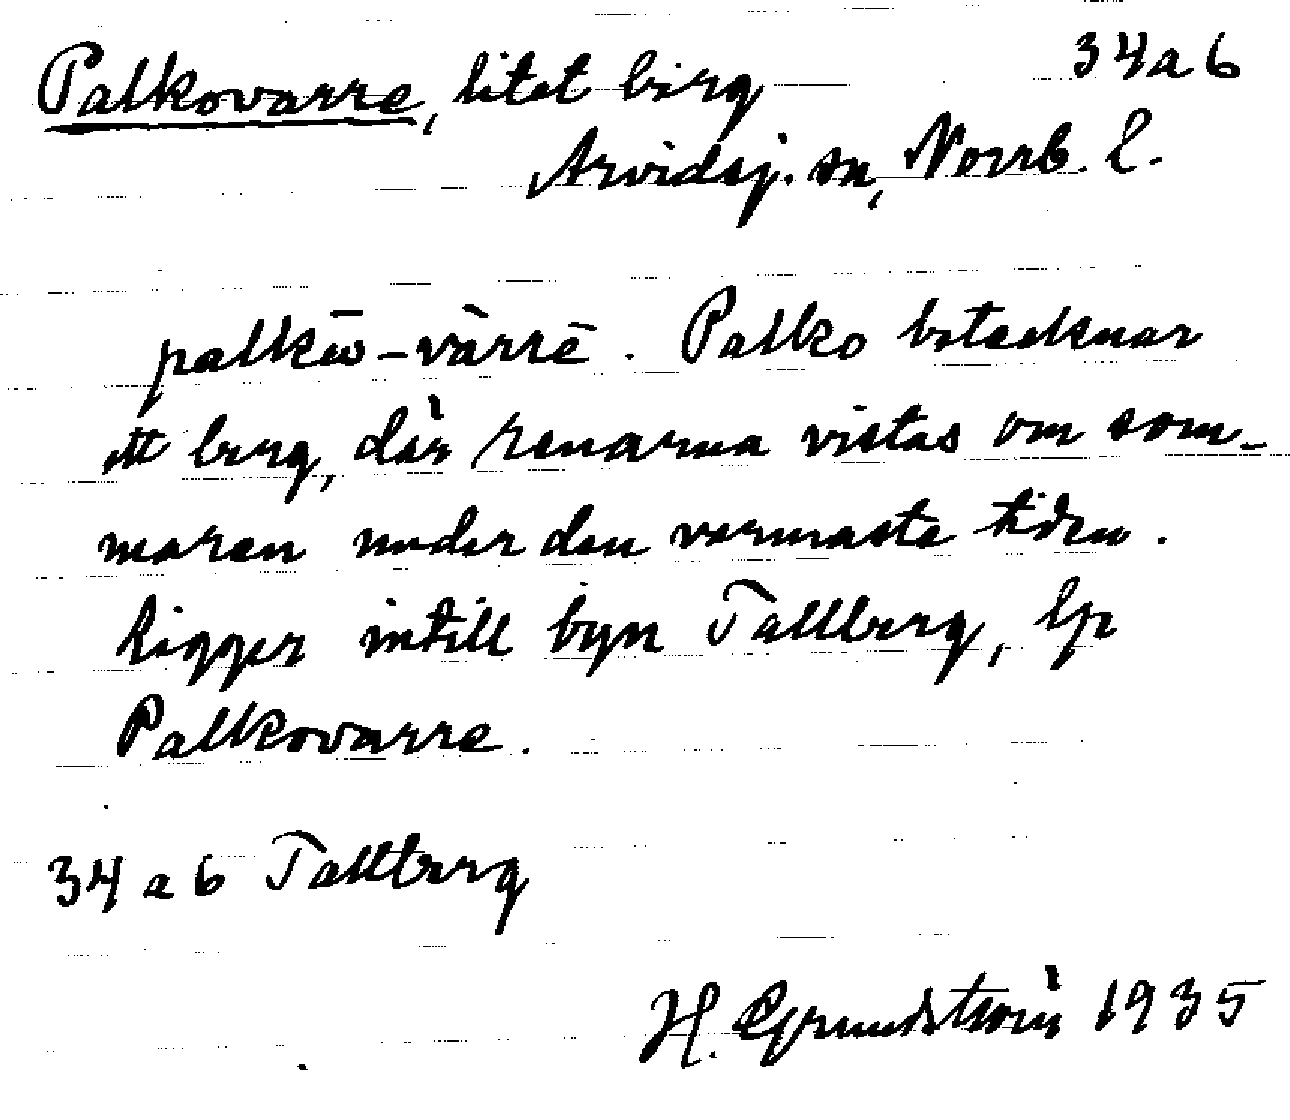 Palkovarre, litet berg 34a6
Arvidsj. sn, Norrb. l.
palkēω-vàrrē. Palko betecknar
ett berg, där renarna vistas om som-
maren under den varmaste tiden.
Ligger intill byn Tallberg, lp
Palkovarre.
34 a 6 Tallberg
H. Grundström 1935